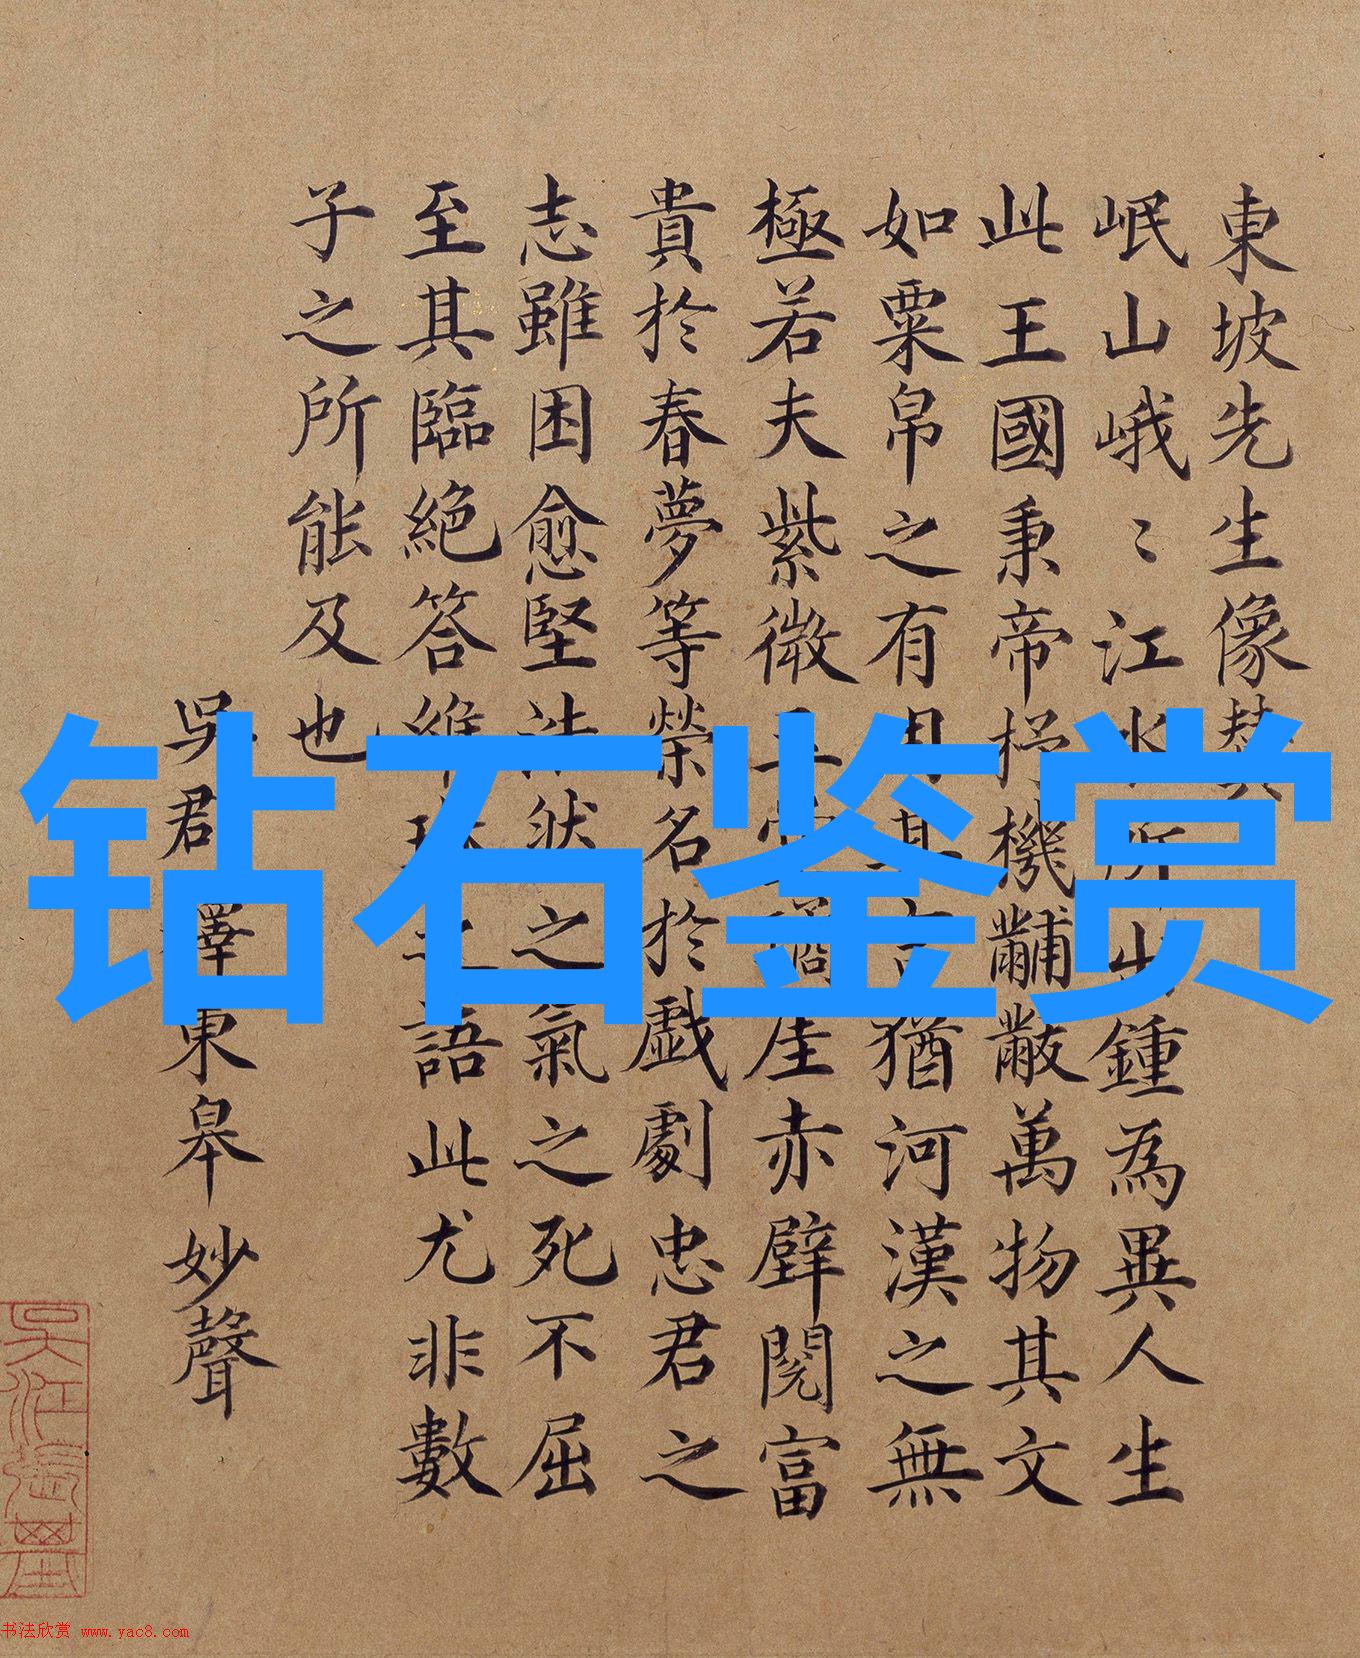 東坡先生像贊
岷山峨〻江水所出鍾為異人生
此王國秉帝杼機黼黻萬物其文
如粟帛之有用其言猶河漢之無
極若夫紫微玉堂瓊崖赤壁閱富
貴於春夢等榮名於戲劇忠君之
志雖困愈堅浩然之氣之死不屈
至其臨絕答維琳之語此尤非數
子之所能及也
吳君釋東皋妙聲
钻石鉴赏
书法欣赏 www.yac8.com